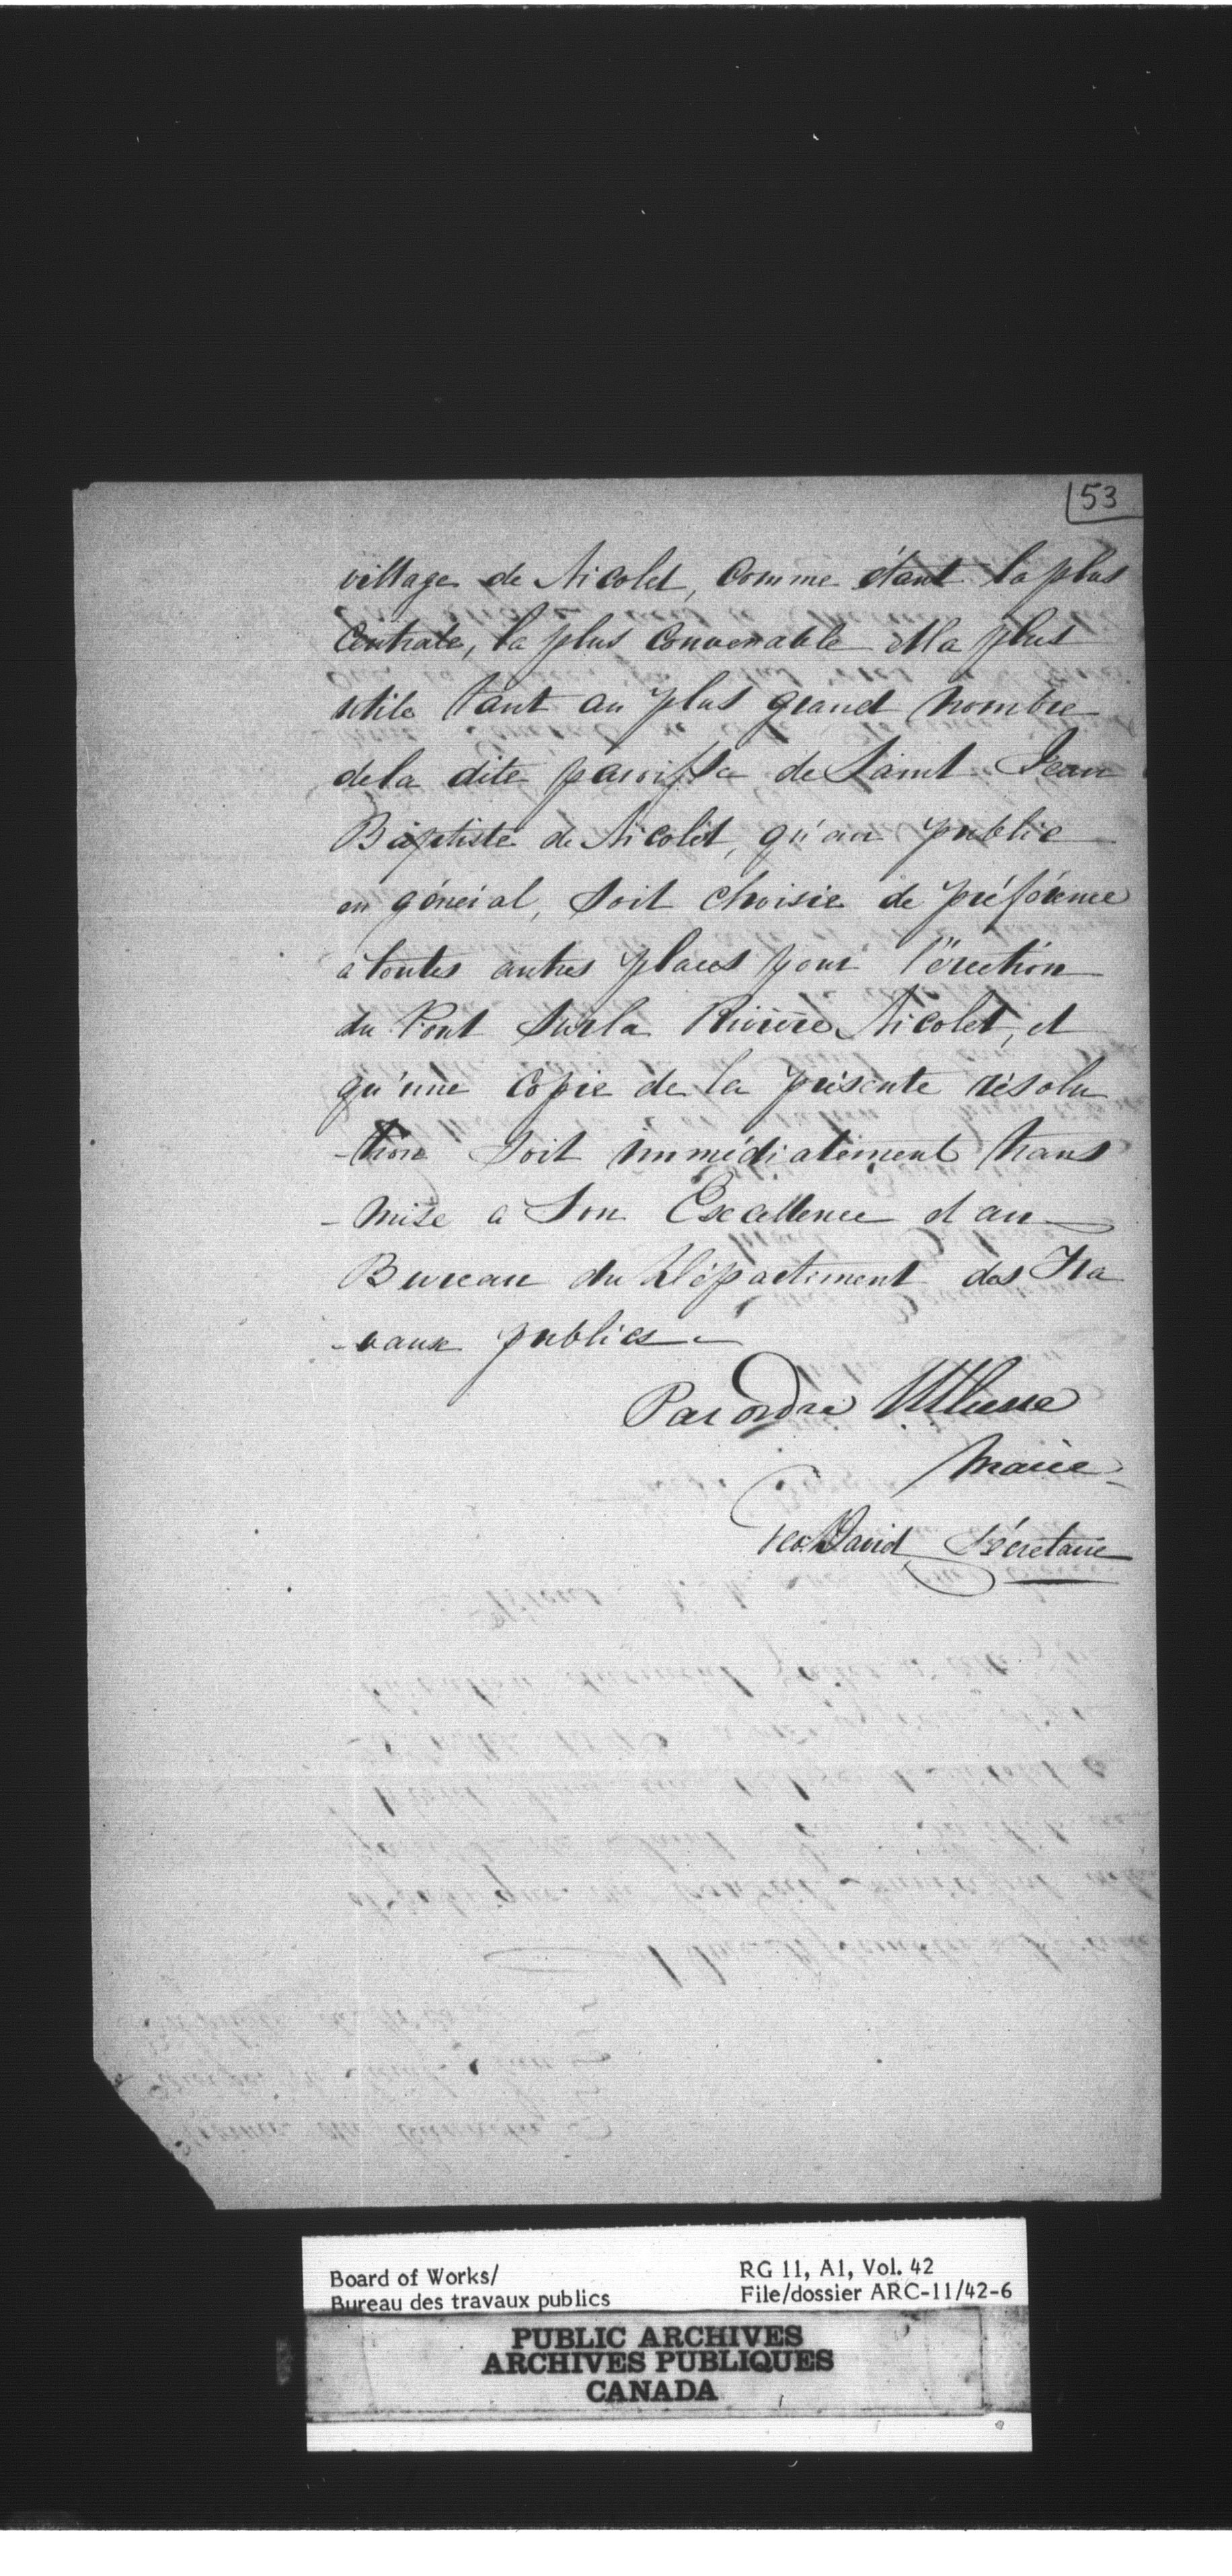 53
village de Nicolet, comme étant la plus
Centrale, la plus Convenable et la plus
utile tant au plus grand nombre
de la dite paroisse de Saint Jean
Baptiste de Nicolet, qu'au public
en général, soit choisie de préférence
a toutes autres places pour l'érection
du Pont sur la Rivière Nicolet, et
qu'une copie de la présente résolu
-tion soit immédiatement trans
-mise a Son Excellence et au
Bureau du Département des Tra
-vaux publics
Par ordre
Maire
Geo. David Sécretaire
Board of Works/
Bureau des travaux publics
RG 11, A1, Vol. 42
File/dossier ARC-11/42-6
PUBLIC ARCHIVES
ARCHIVES PUBLIQUES
CANADA